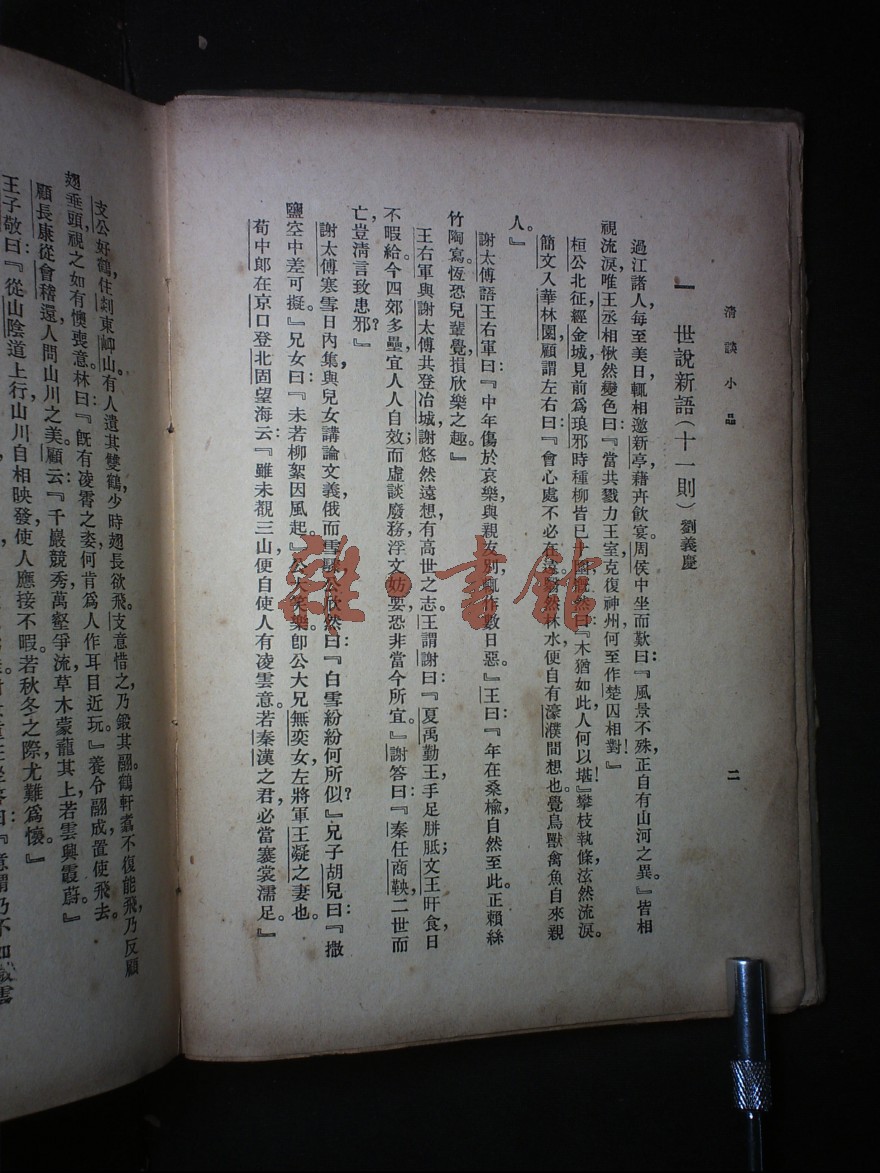 清談小品
二
一 世說新語(十一則)劉義慶
過江諸人，每至美日，輒相邀新亭，藉卉飲宴。周侯中坐而歎曰：『風景不殊，正自有山河之異』皆相
視流淚。唯王丞相愀然變色曰：『當共戮力王室，克復神州，何至作楚囚相對！』
桓公北征，經金城，見前爲琅邪時種柳，皆已十圍，慨然曰：『木猶如此，人何以堪！』攀枝執條，泫然流淚。
簡文入華林園，顧謂左右曰：『會心處不必在遠，翳然林水，便自有濠濮間想也。覺鳥獸禽魚，自來親
人。』
謝太傅語王右軍曰：『中年傷於哀樂，與親友別，輒作數日惡。』王曰：『年在桑榆，自然至此，正賴絲
竹陶寫，恆恐兒輩覺，損欣樂之趣。』
王右軍與謝太傅共登冶城，謝悠然遠想，有高世之志。王謂謝曰：『夏禹勤王，手足胼胝；文王旰食，日
不暇給。今四郊多壘，宜人人自效；而虛談廢務，浮文妨要，恐非當今所宜。』謝答曰：『秦任商鞅，二世而
亡，豈清言致患邪？』
謝太傅寒雪日內集，與兒女講論文義，俄而雪驟，公欣然曰：『白雪紛紛何所似？』兄子胡兒曰：『撒
鹽空中差可擬。』兄女曰：『未若柳絮因風起。』公大笑樂。卽公大兄無奕女，左將軍王凝之妻也。
荀中郎在京口，登北固望海云：『雖未覩三山，便自使人有凌雲意。若秦漢之君，必當褰裳濡足。』
支公好鶴，住剡東岇山。有人遺其雙鶴，少時翅長欲飛，支意惜之，乃鎩其翮。鶴軒翥不復能飛，乃反顧
翅垂頭，視之如有懊喪意。林曰：『旣有凌霄之姿，何肯爲人作耳目近玩。』養令翮成，置使飛去。
顧長康從會稽還，人問山川之美，顧云：『千巖競秀，萬壑爭流，草木蒙籠其上，若雲興霞蔚。』
王子敬曰：『從山陰道上行，山川自相映發，使人應接不暇，若秋冬之際，尤難爲懷。』
雜·書館